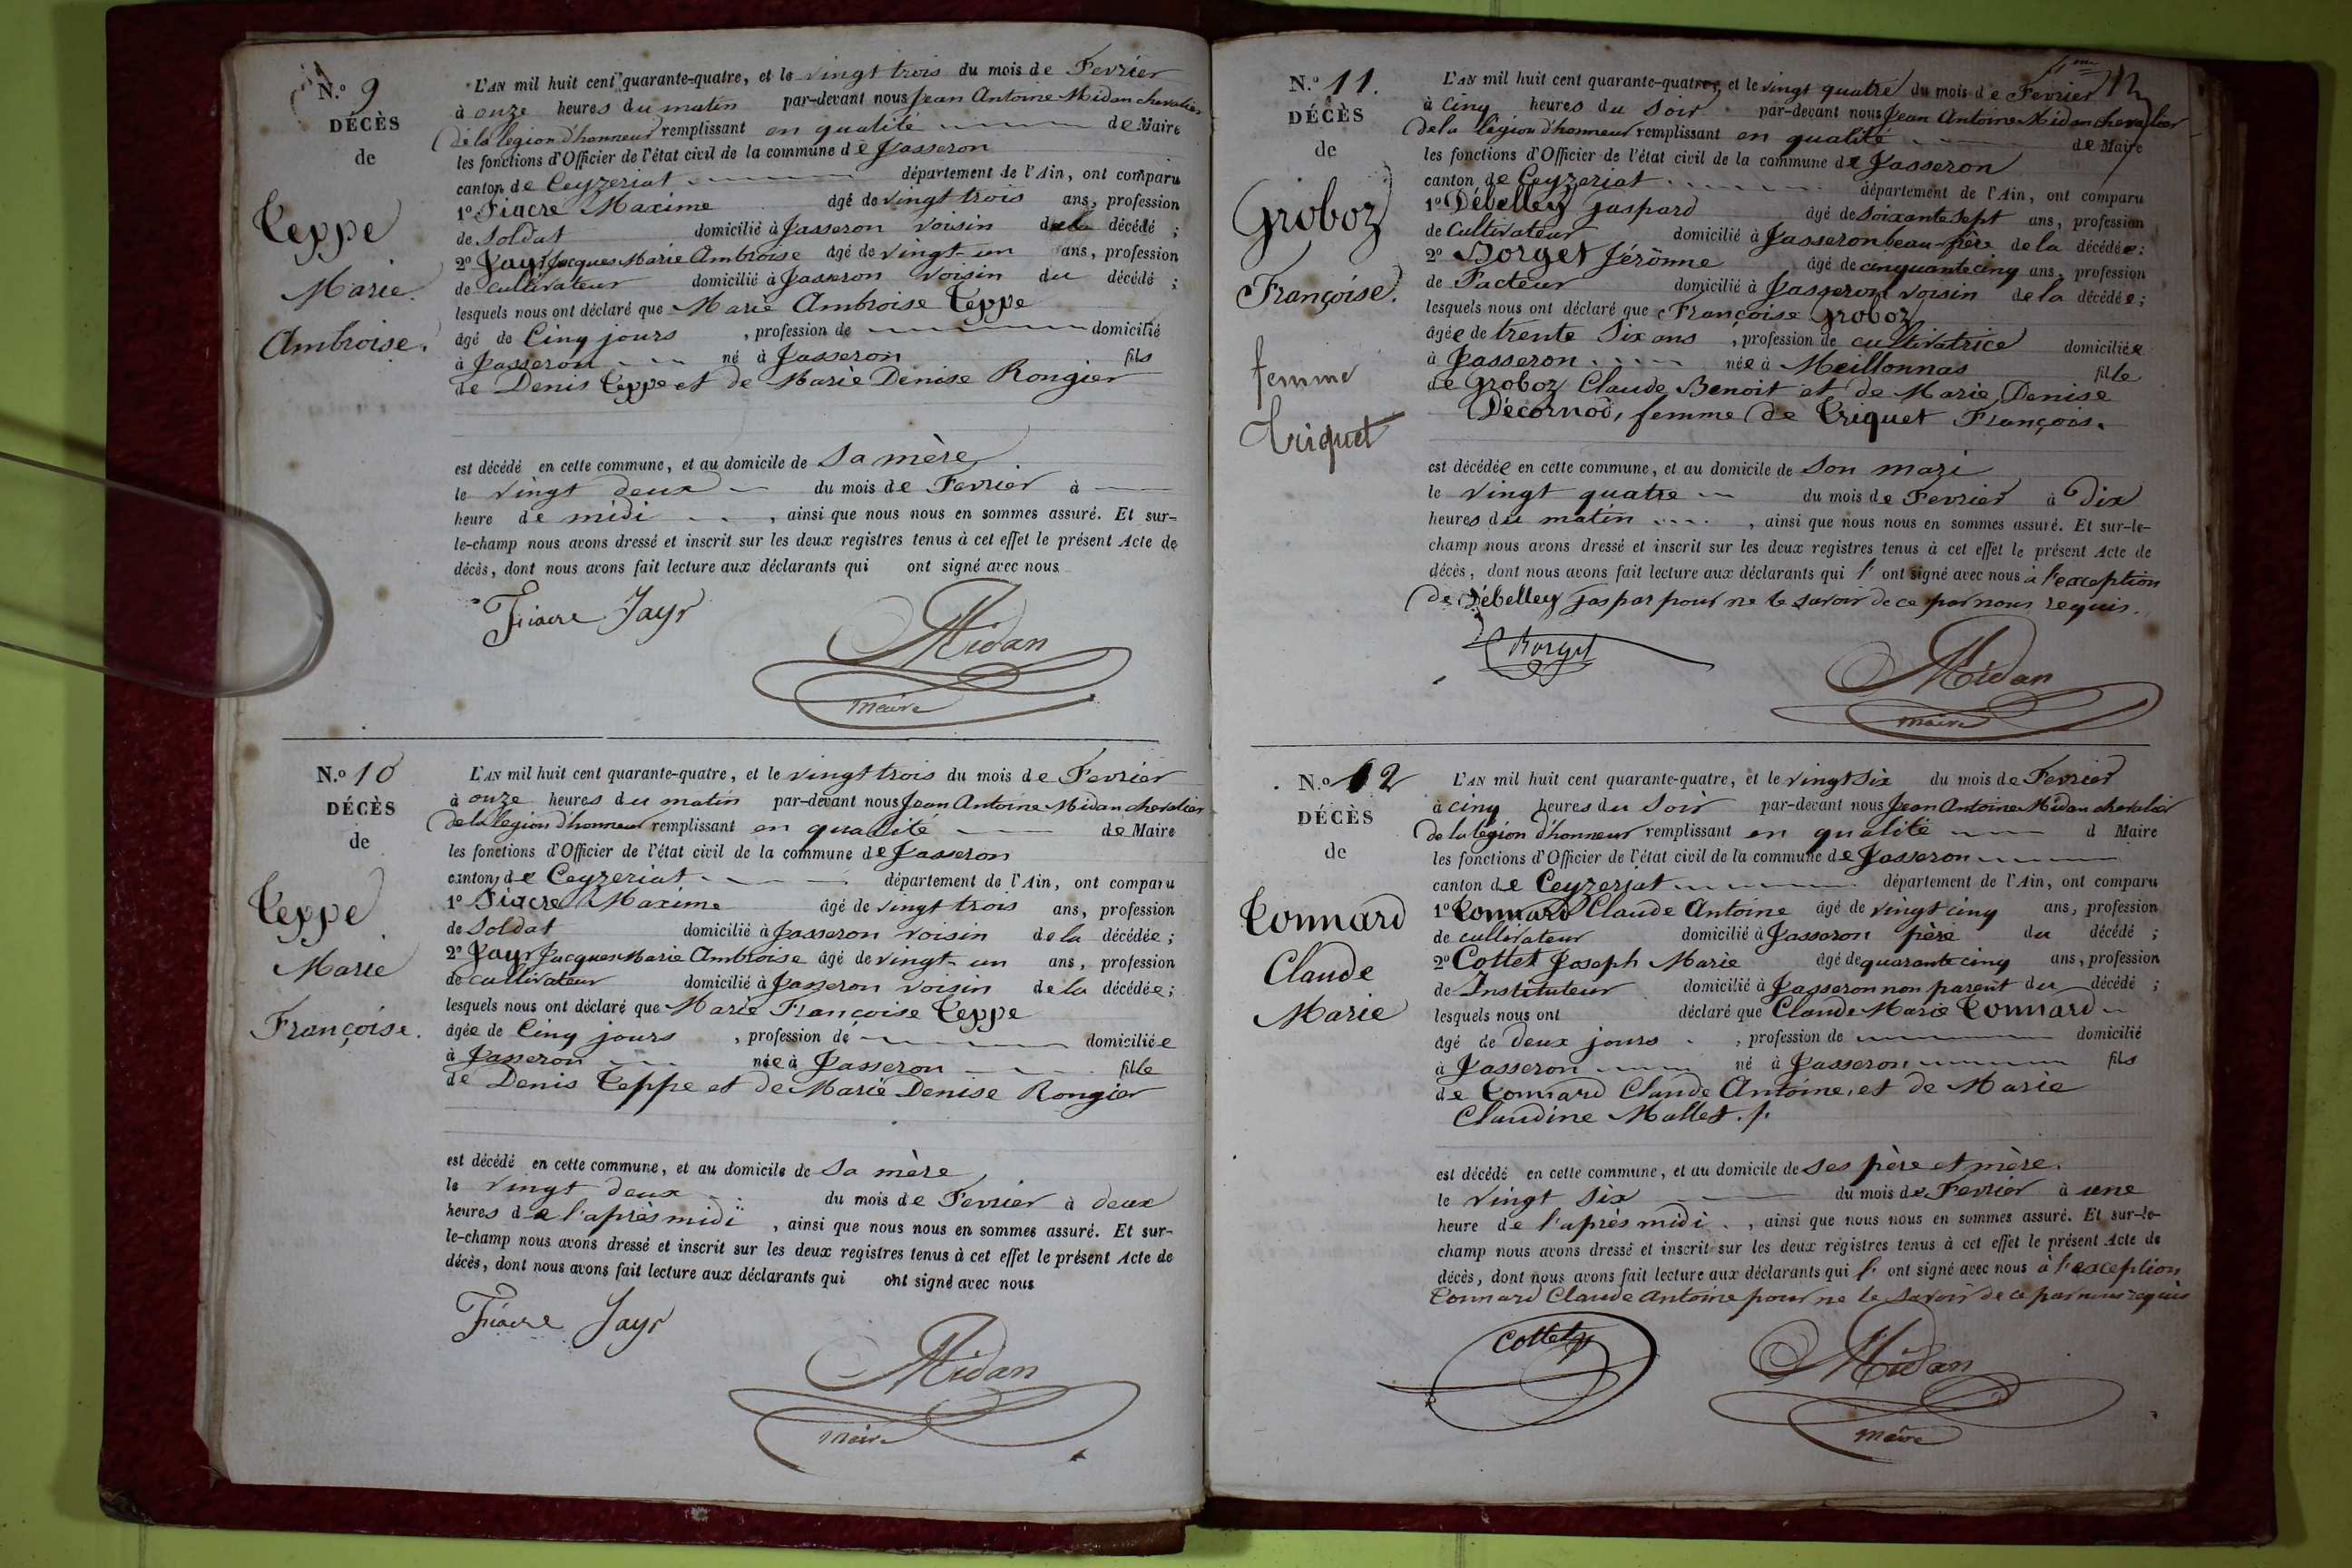 N.o 9
DÉCÈS
de
Teppe
Marie
Ambroise.
L'AN mil huit cent quarante-quatre, et le vingt trois du mois de Fevrier
à onze heures du matin par-devant nous Jean Antoine Midan chevalier
de la légion d'honneur remplissant en qualité de Maire
les fonctions d'Officier de l'état civil de la commune de Jasseron
canton de Ceyzeriat département de l'Ain, ont comparu
1o Fiacre Maxime âgé de vingt trois ans, profession
de Soldat domicilié à Jasseron voisin du décédé ;
2o Jayr Jacques Marie Ambroise âgé de vingt-un ans, profession
de cultivateur domicilié à Jasseron voisin du décédé ;
lesquels nous ont déclaré que Marie Ambroise Teppe
âgé de Cinq jours , profession de domicilié
à Jasseron né à Jasseron fils
de Denis Teppe et de Marie Denise Rongier
est décédé en cette commune, et au domicile de Sa mère
le vingt deux du mois de Fevrier à
heure de midi , ainsi que nous nous en sommes assuré. Et sur-
le-champ nous avons dressé et inscrit sur les deux registres tenus à cet effet le présent Acte de
décès, dont nous avons fait lecture aux déclarants qui ont signé avec nous
Fiacre Jayr
Midan
maire
N.o 10
DÉCÈS
de
Teppe
Marie
Françoise.
L'AN mil huit cent quarante-quatre, et le vingt trois du mois de Fevrier
à onze heures du matin par-devant nous Jean Antoine Midan chevalier
de la légion d'honneur remplissant en qualité de Maire
les fonctions d'Officier de l'état civil de la commune de Jasseron
canton de Ceyzeriat département de l'Ain, ont comparu
1o Fiacre Maxime âgé de vingt trois ans, profession
de Soldat domicilié à Jasseron voisin de la décédée ;
2o Jayr Jacques Marie Ambroise âgé de vingt-un ans, profession
de cultivateur domicilié à Jasseron voisin de la décédée ;
lesquels nous ont déclaré que Marie Francoise Teppe
âgée de Cinq jours , profession de domiciliée
à Jasseron née à Jasseron fille
de Denis Teppe et de Marie Denise Rongier
est décédé en cette commune, et au domicile de Sa mère
le vingt deux du mois de Fevrier à deux
heures de l'après midi , ainsi que nous nous en sommes assuré. Et sur-
le-champ nous avons dressé et inscrit sur les deux registres tenus à cet effet le présent Acte de
décès, dont nous avons fait lecture aux déclarants qui ont signé avec nous
Fiacre Jayr
Midan
maire
N.o 11.
DÉCÈS
de
Groboz
Françoise.
femme
Triquet
L'AN mil huit cent quarante-quatre, et le vingt quatre du mois de Fevrier
à cinq heures du soir par-devant nous Jean Antoine Midan chevalier
de la légion d'honneur remplissant en qualité de Maire
les fonctions d'Officier de l'état civil de la commune de Jasseron
canton de Ceyzeriat département de l'Ain, ont comparu
1o Débelley Jaspard âgé de soixante sept ans, profession
de Cultivateur domicilié à Jasseron beau-père de la décédée :
2o Borget Jérôme âgé de cinquante cinq ans, profession
de Facteur domicilié à Jasseron voisin de la décédée ;
lesquels nous ont déclaré que Françoise Groboz
âgée de trente Six ans , profession de cultivatrice domiciliée
à Jasseron née à Meillonnas fille
de Groboz Claude Benoit et de Marie Denise
Décornod, femme de Triquet François.
est décédée en cette commune, et au domicile de Son mari
le vingt quatre du mois de Fevrier à Dix
heures du matin , ainsi que nous nous en sommes assuré. Et sur-le-
champ nous avons dressé et inscrit sur les deux registres tenus à cet effet le présent Acte de
décès, dont nous avons fait lecture aux déclarants qui l' ont signé avec nous à l'exception
de Débelley jaspar pour ne le savoir de ce par nous requis.
Borget
Midan
maire
N.o 12
DÉCÈS
de
Connard
Claude
Marie
L'AN mil huit cent quarante-quatre, et le vingt Six du mois de Fevrier
à cinq heures du Soir par-devant nous Jean Antoine Midan chevalier
de la légion d'honneur remplissant en qualité d Maire
les fonctions d'Officier de l'état civil de la commune de Jasseron
canton de Ceyzeriat département de l'Ain, ont comparu
1o Connard Claude Antoine âgé de vingt cinq ans, profession
de cultivateur domicilié à Jasseron père du décédé ;
2o Cottet Joseph Marie âgé de quarante cinq ans, profession
de Instituteur domicilié à Jasseron non parent du décédé ;
lesquels nous ont déclaré que Claude Marie Connard
âgé de deux jours , profession de domicilié
à Jasseron né à Jasseron fils
de Connard Claude Antoine, et de Marie
Claudine Mallet.
est décédé en cette commune, et au domicile de Ses père et mère.
le vingt Six du mois de Fevrier à une
heure de l'après midi , ainsi que nous nous en sommes assuré. Et sur-le-
champ nous avons dressé et inscrit sur les deux registres tenus à cet effet le présent Acte de
décès, dont nous avons fait lecture aux déclarants qui l' ont signé avec nous à l'exception
Connard Claude Antoine pour ne le savoir de ce par nous requis
Cottet
Midan
maire